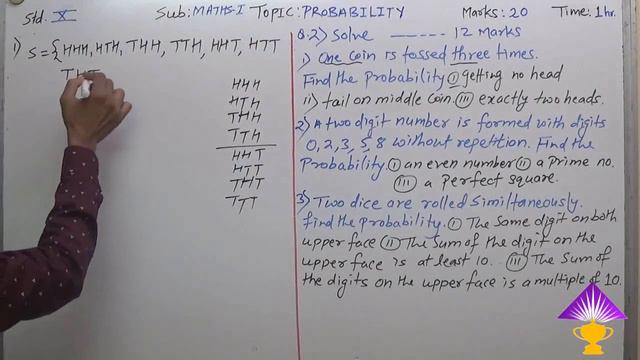 Std. X Sub: MATHS-I TOPIC: PROBABILITY Marks: 20 Time: 1hr.
1) S = {HHH, HTH, THH, TTH, HHT, HTT
THT
HHH
HTH
THH
TTH
HHT
HTT
THT
TTT
Q.2) Solve ------ 12 Marks
i) One coin is tossed three times.
Find the Probability (i) getting no head
ii) tail on middle coin. (iii) exactly two heads.
2) A two digit number is formed with digits
0, 2, 3, 5, 8 without repetition. Find the
Probability. (i) an even number (ii) a prime no.
(iii) a perfect square.
3) Two dice are rolled Similtaneously.
find the probability. (i) The Same digit on both
upper face (ii) The Sum of the digit on the
upper face is at least 10. (iii) The Sum of
the digits on the upper face is a multiple of 10.